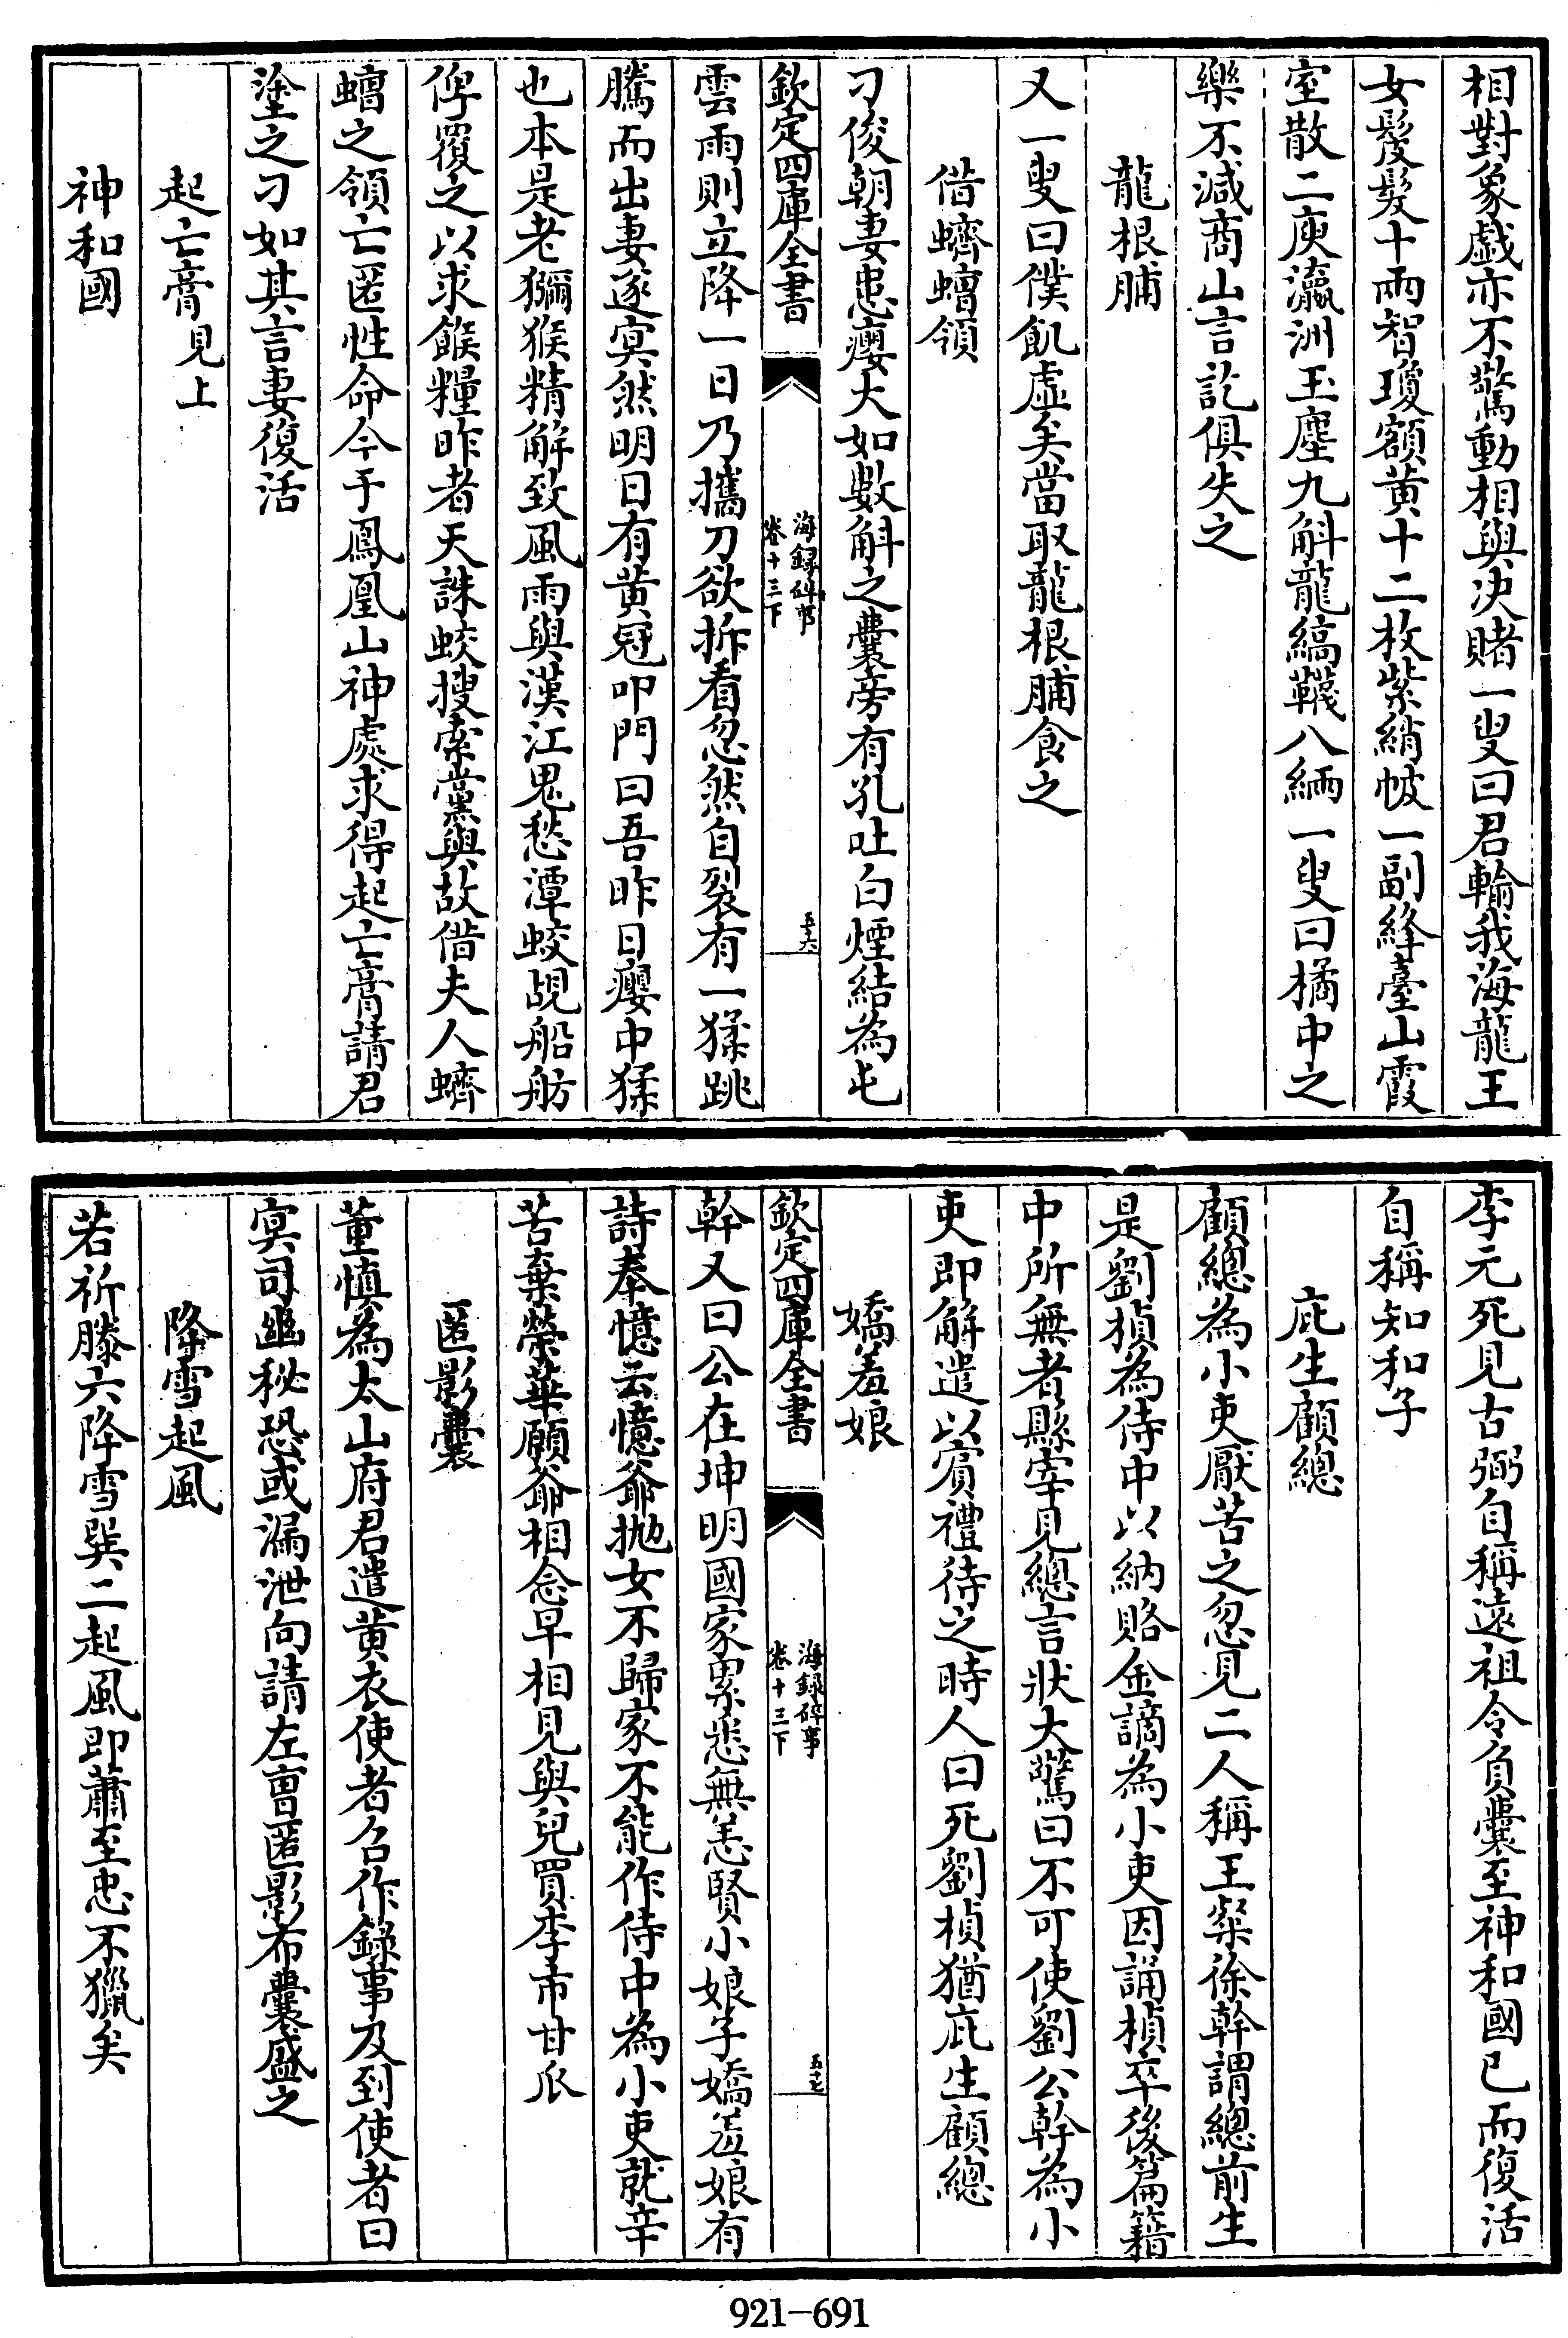 相對象戯亦不驚動相與决賭一叟曰君輸我海龍王
女髲髮十兩智瓊額黄十二枚紫綃帔一副絳臺山霞
室散二庾瀛洲玉塵九斛龍縞韈八緉一叟曰橘中之
樂不減商山言訖俱失之
龍根脯
又一叟曰僕飢虚矣當取龍根脯食之
借蠐螬領
刁俊朝妻患癭大如數斛之囊旁有孔吐白煙結為屯
欽定四庫全書
海録碎事
卷十三下
五十六
雲雨則立降一日乃攜刀欲拆看忽然自裂有一猱跳
騰而出妻遂寞然明日有黄冠叩門曰吾昨日癭中猱
也本是老獼猴精解致風雨與漢江鬼愁潭蛟覘船舫
俾覆之以求餱糧昨者天誅蛟搜索黨與故借夫人蠐
螬之領亡匿性命今于鳳凰山神處求得起亡膏請君
塗之刁如其言妻復活
起亡膏見上
神和國
李元死見古弼自稱遠祖令負囊至神和國已而復活
自稱知和子
庇生顧總
顧總為小吏厭苦之忽見二人稱王粲徐幹謂總前生
是劉楨為侍中以納賂金謫為小吏因誦楨卒後篇籍
中所無者縣宰見總言狀大驚曰不可使劉公幹為小
吏即解遣以賓禮待之時人曰死劉楨猶庇生顧總
嬌羞娘
欽定四庫全書
海録碎事
卷十三下
五十七
幹又曰公在坤明國家累悉無恙賢小娘字嬌羞娘有
詩奉憶云憶爺抛女不歸家不能作侍中為小吏就辛
苦棄榮華願爺相念早相見與兒買李市甘瓜
匿影囊
董慎為太山府君遣黄衣使者召作錄事及到使者曰
冥司幽秘恐或漏泄向請左曺匿影布囊盛之
降雪起風
若祈滕六降雪巽二起風即蕭至忠不獵矣
921-691